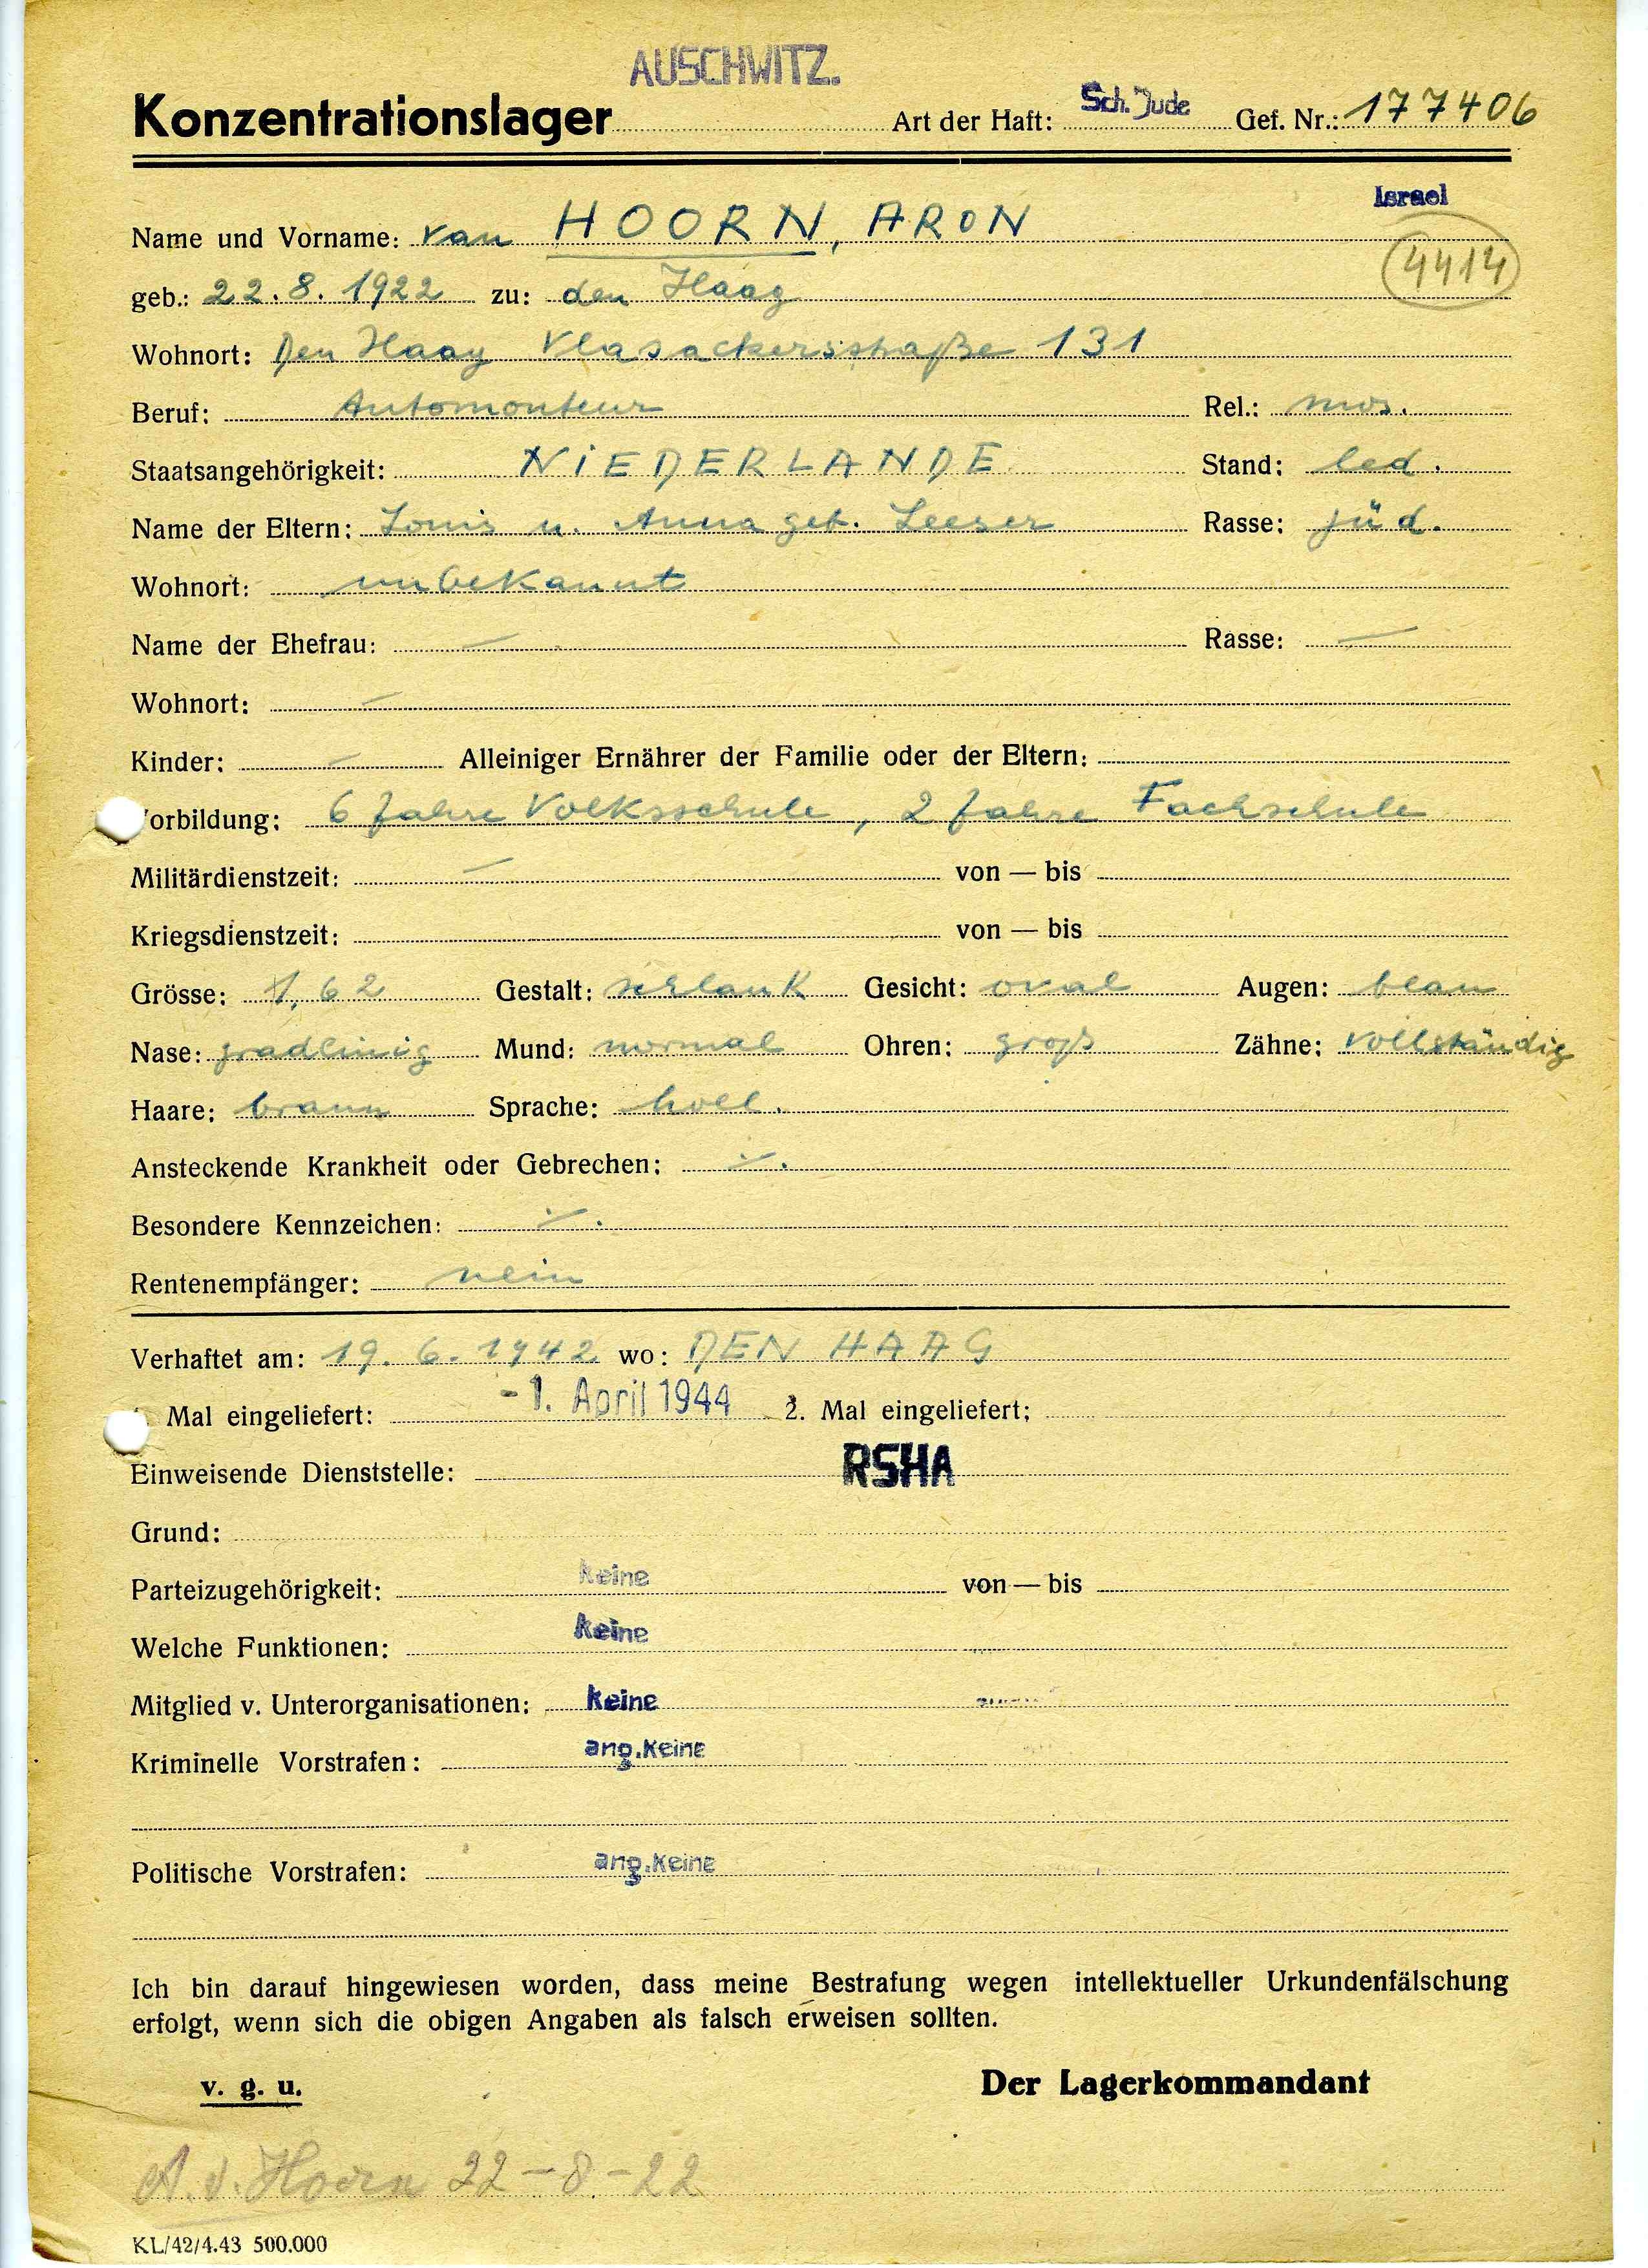 AUSCHWITZ.
Konzentrationslager Art der Haft: Sch. Jude Gef. Nr.: 177406
Israel
Name und Vorname: van HOORN, ARON
4414
geb.: 22.8.1922 zu: den Haag
Wohnort: Den Haag Vlasackersstraße 131
Beruf: Automonteur Rel.: mos.
Staatsangehörigkeit: NIEDERLANDE Stand: led.
Name der Eltern: Louis u. Anna geb. Leeser Rasse: jüd.
Wohnort: unbekannt
Name der Ehefrau: — Rasse: —
Wohnort: —
Kinder: — Alleiniger Ernährer der Familie oder der Eltern:
orbildung: 6 Jahre Volksschule, 2 Jahre Fachschule
Militärdienstzeit: — von — bis
Kriegsdienstzeit: von — bis
Grösse: 1,62 Gestalt: schlank Gesicht: oval Augen: blau
Nase: gradlinig Mund: normal Ohren: groß Zähne: vollständig
Haare: braun Sprache: holl.
Ansteckende Krankheit oder Gebrechen: ./.
Besondere Kennzeichen: ./.
Rentenempfänger: nein
Verhaftet am: 19.6.1942 wo: DEN HAAG
Mal eingeliefert: -1. April 1944 2. Mal eingeliefert:
Einweisende Dienststelle: RSHA
Grund:
Parteizugehörigkeit: keine von — bis
Welche Funktionen: keine
Mitglied v. Unterorganisationen: keine
Kriminelle Vorstrafen: ang. keine
Politische Vorstrafen: ang. keine
Ich bin darauf hingewiesen worden, dass meine Bestrafung wegen intellektueller Urkundenfälschung
erfolgt, wenn sich die obigen Angaben als falsch erweisen sollten.
v. g. u. Der Lagerkommandant
A. v. Hoorn 22-8-22
KL/42/4.43 500.000